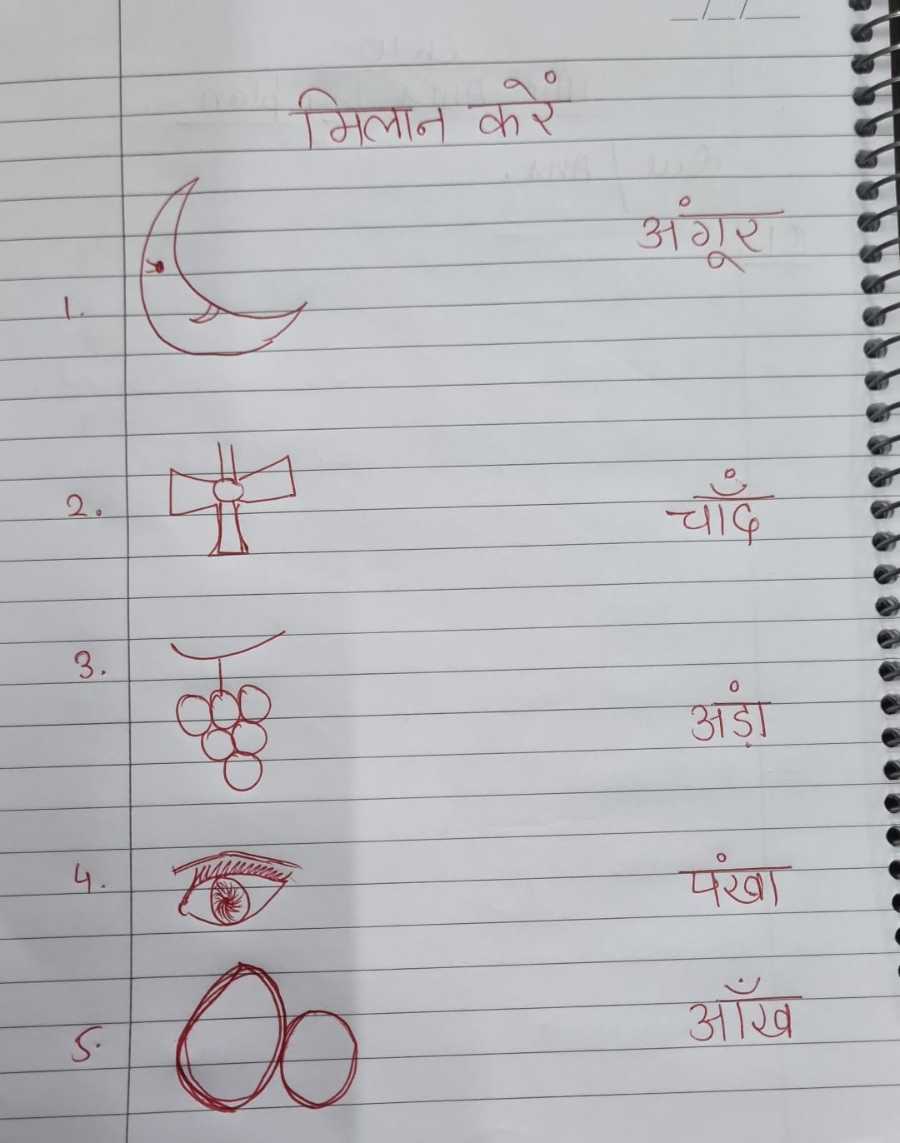 मिलान करें
1. अंगूर
2. चाँद
3. अंड़ा
4. पंखा
5. आँख